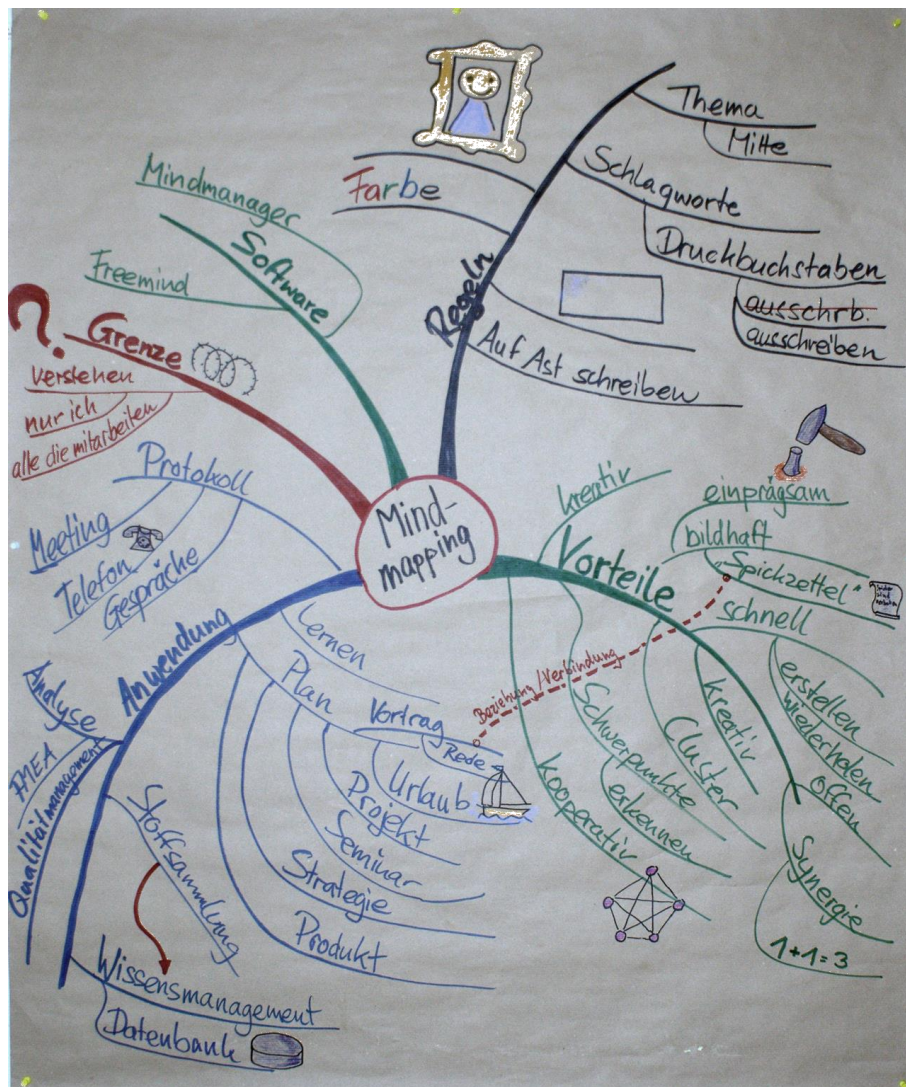 Mind-
mapping
Regeln
Thema
Mitte
Schlagworte
Druckbuchstaben
ausschrb.
ausschreiben
Auf Ast schreiben
Farbe
Software
Mindmanager
Freemind
Grenze
?
verstehen
nur ich
alle die mitarbeiten
Vorteile
kreativ
einprägsam
bildhaft
"Spickzettel"
schnell
erstellen
wiederholen
offen
Synergie
1+1=3
kreativ
Cluster
Schwerpunkte
erkennen
kooperativ
Beziehung/Verbindung
Anwendung
Protokoll
Meeting
Telefon
Gespräche
Lernen
Plan
Vortrag
Rede
Urlaub
Projekt
Seminar
Strategie
Produkt
Analyse
FMEA
Qualitätmanagement
Stoffsammlung
Wissensmanagement
Datenbank